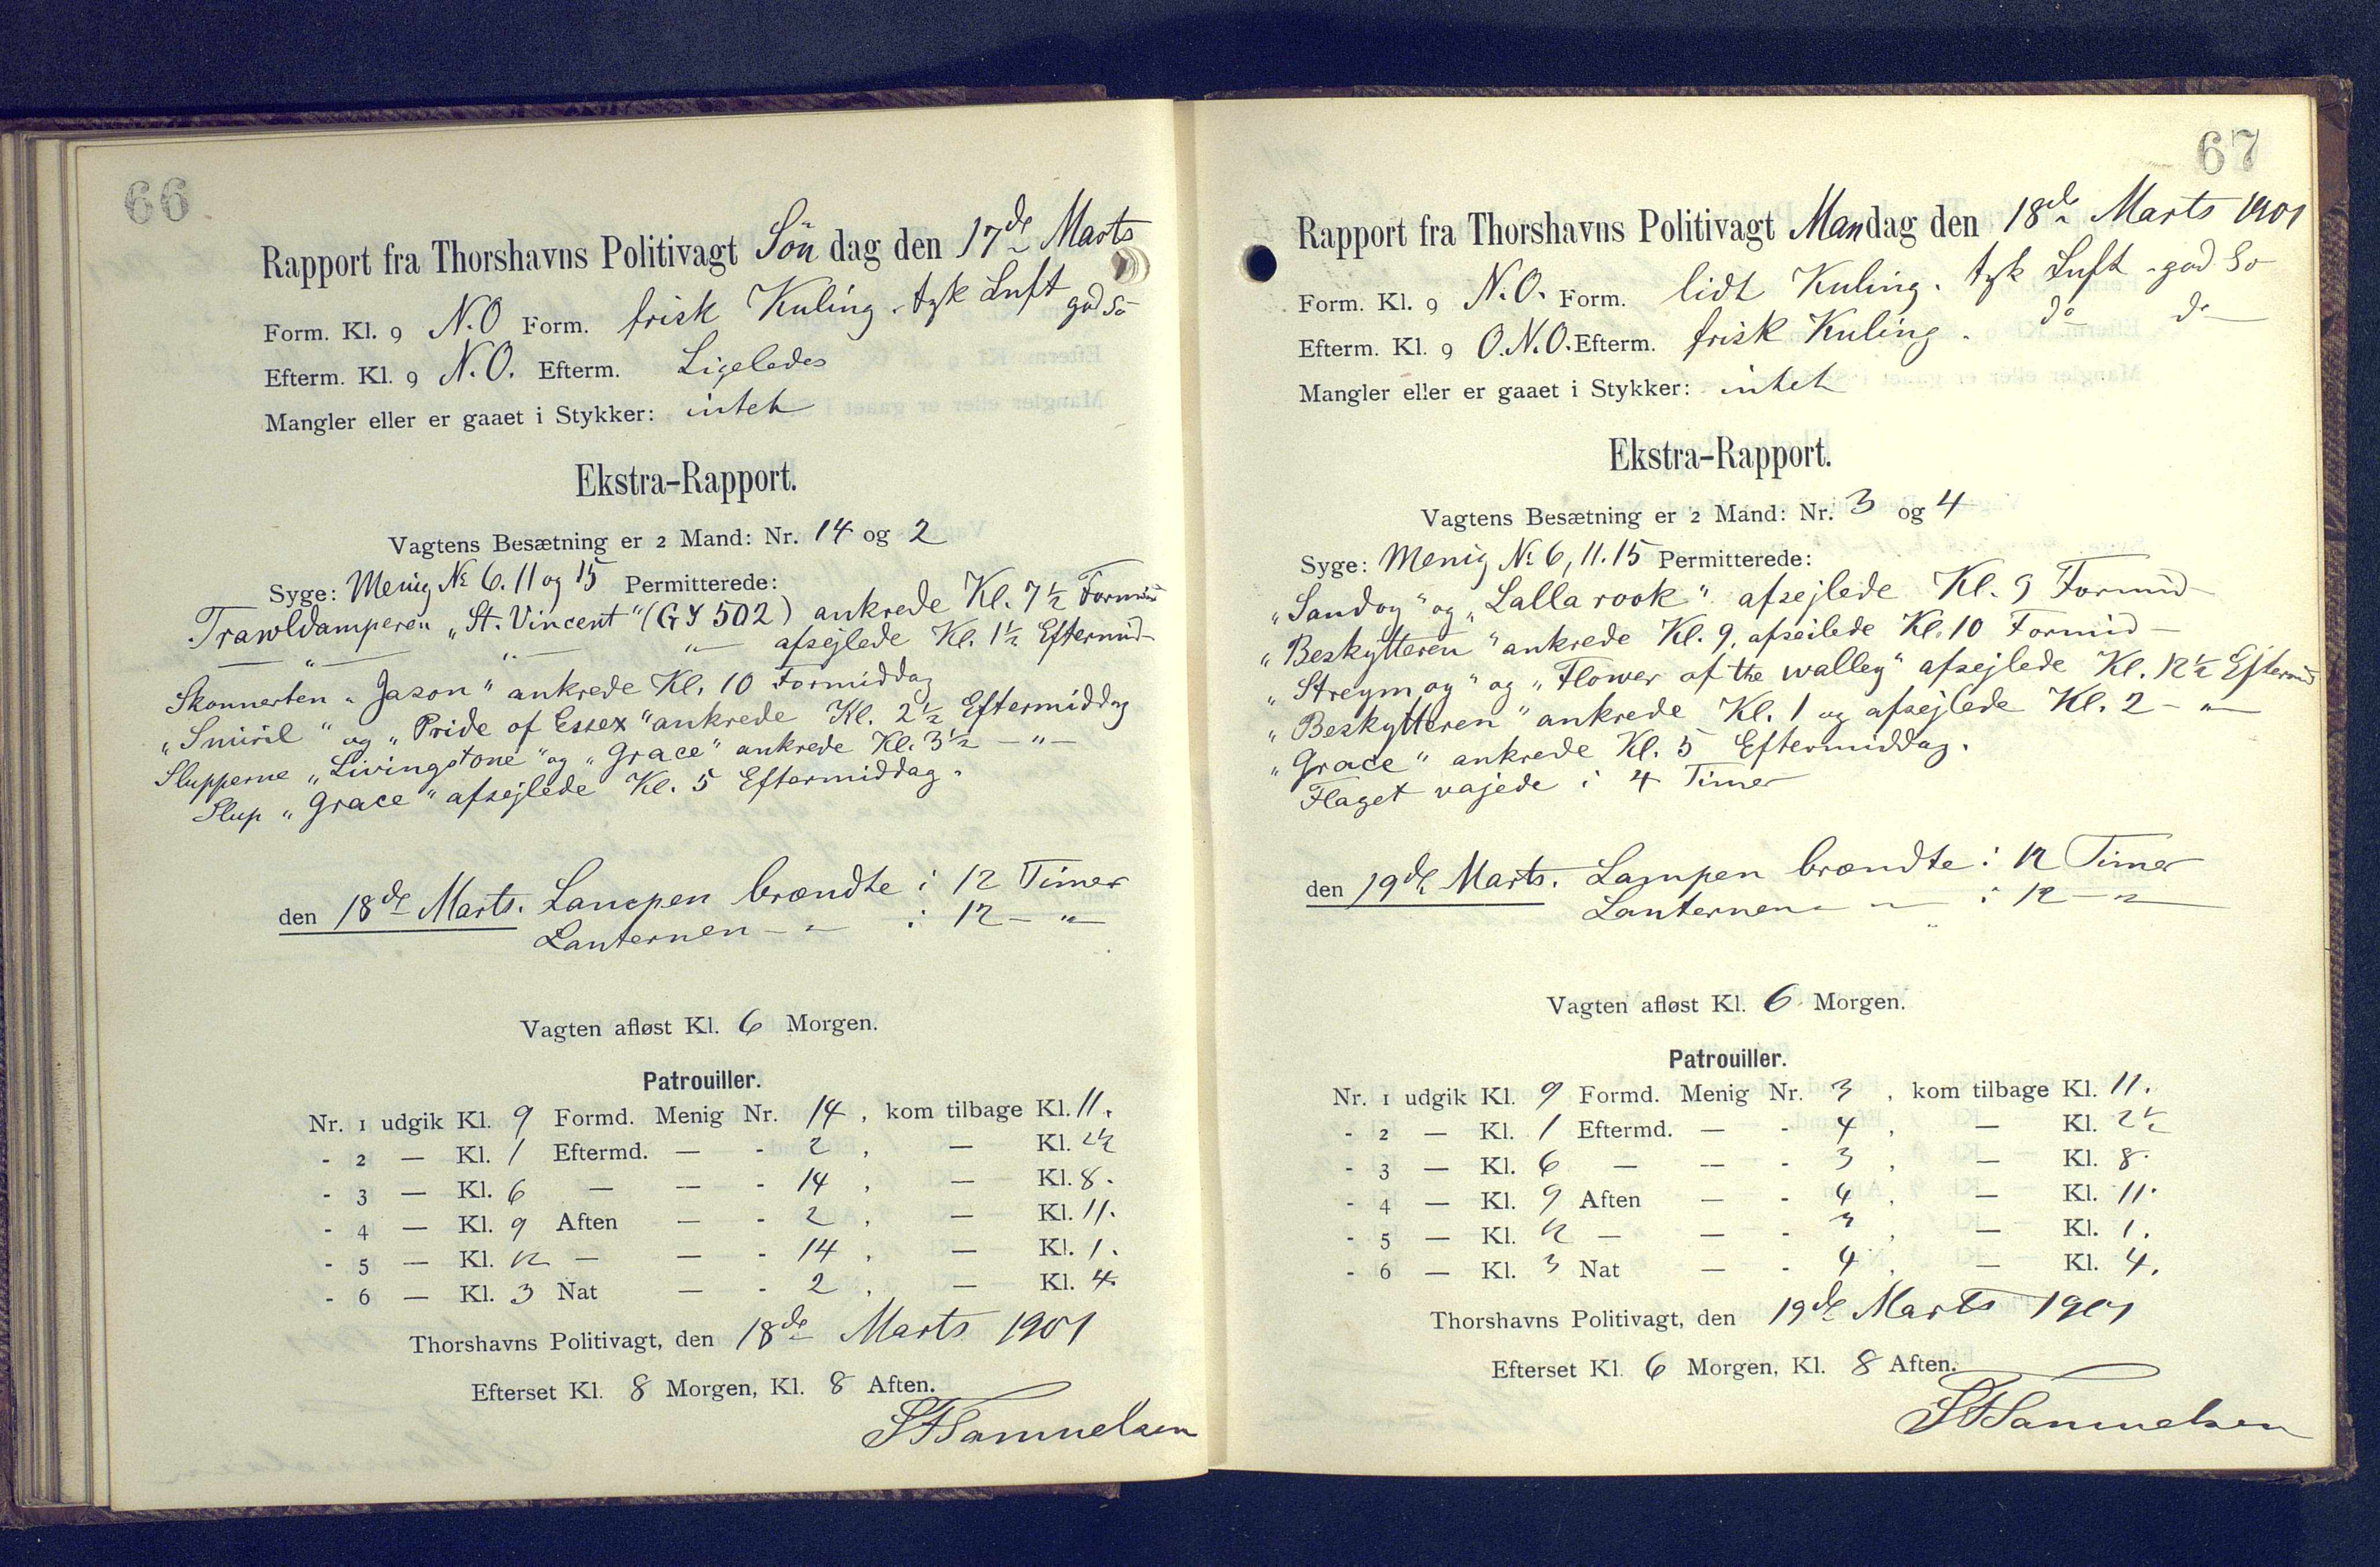 66
Rapport fra Thorshavns Politivagt Søn dag den 17de Marts
Form. Kl. 9 N.O Form. frisk Kuling. tyk Luft god Sø
Efterm. Kl. 9 N.O. Efterm. Ligeledes
Mangler eller er gaaet i Stykker: intet
Ekstra-Rapport.
Vagtens Besætning er 2 Mand: Nr. 14 og 2
Syge: Menig № 6. 11 og 15 Permitterede:
Trawldamperen „St. Vincent" (GY 502) ankrede Kl. 7½ Formid
— „ — „ — „ — afsejlede Kl. 1½ Eftermid-
Skonnerten „Jason" ankrede Kl. 10 Formiddag
„Smiril" og „Pride of Essex" ankrede Kl. 2½ Eftermiddag
Slupperne „Livingstone" og „Grace" ankrede Kl. 3½ — „ —
Slup „Grace" afsejlede Kl. 5 Eftermiddag.
den 18de Marts. Lampen brændte i 12 Timer
Lanternen - „ - i 12 - „ -
Vagten afløst Kl. 6 Morgen.
Patrouiller.
Nr. 1 udgik Kl. 9 Formd. Menig Nr. 14, kom tilbage Kl. 11.
- 2 — Kl. 1 Eftermd. — - 2, — Kl. 2½
- 3 — Kl. 6 — — - 14, — Kl. 8.
- 4 — Kl. 9 Aften — - 2, — Kl. 11.
- 5 — Kl. 12 — — - 14, — Kl. 1.
- 6 — Kl. 3 Nat — - 2, — Kl. 4.
Thorshavns Politivagt, den 18de Marts 1901
Efterset Kl. 8 Morgen, Kl. 8 Aften.
SFSamuelsen
67
Rapport fra Thorshavns Politivagt Mandag den 18de Marts 1901
Form. Kl. 9 N.O. Form. lidt Kuling. tyk Luft - god Sø
Efterm. Kl. 9 O.N.O. Efterm. frisk Kuling. do do
Mangler eller er gaaet i Stykker: intet
Ekstra-Rapport.
Vagtens Besætning er 2 Mand: Nr. 3 og 4
Syge: Menig № 6, 11. 15 Permitterede:
„Sandoy" og „Lalla rook" afsejlede Kl. 9 Formid-
„Beskytteren" ankrede Kl. 9, afseilede Kl. 10 Formid-
„Streymoy" og „Flower of the walley" afsejlede Kl. 12½ Eftermid
„Beskytteren" ankrede Kl. 1 og afsejlede Kl. 2 - „ -
„Grace" ankrede Kl. 5 Eftermiddag.
Flaget vajede i 4 Timer
den 19de Marts. Lampen brændte i 12 Timer
Lanternen - „ - i 12 - „ -
Vagten afløst Kl. 6 Morgen.
Patrouiller.
Nr. 1 udgik Kl. 9 Formd. Menig Nr. 3, kom tilbage Kl. 11.
- 2 — Kl. 1 Eftermd. — - 4, — Kl. 2½
- 3 — Kl. 6 — — - 3, — Kl. 8.
- 4 — Kl. 9 Aften — - 4, — Kl. 11.
- 5 — Kl. 12 — — - 3, — Kl. 1.
- 6 — Kl. 3 Nat — - 4, — Kl. 4.
Thorshavns Politivagt, den 19de Marts 1901
Efterset Kl. 6 Morgen, Kl. 8 Aften.
SFSamuelsen